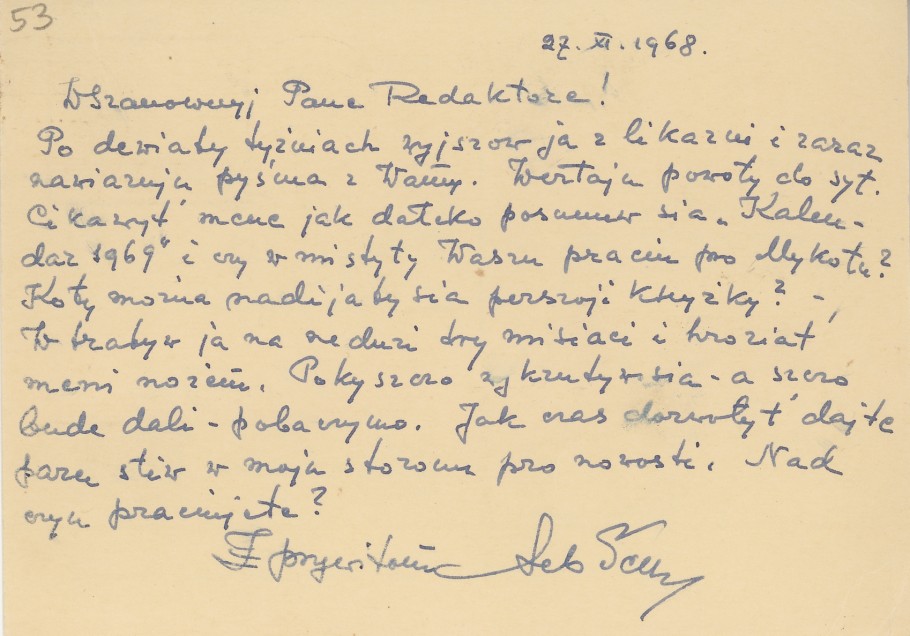 53
27. XI. 1968.
WSzanownyj Pane Redaktore!
Po dewiaty tyżniach wyjszow ja z likarni i zaraz
nawiazuju pyśma z Wamy. Wertaju powoły do sył.
Cikawyt' mene jak dałeko posunuw sia „Kalen-
dar 1969" i czy w mistyty Waszu praciu pro Mykołu?
Koły można nadijaty sia perszoji knyżky? -
W tratyw ja na neduzi try misiaci i hroziat'
meni nożem. Pokyszczo wykrutyw sia - a szczo
bude dali - pobaczymo. Jak czas dozwołyt' dajte
paru sliw w moju storonu pro nowosti. Nad
czym praciujete?
Z prywitom